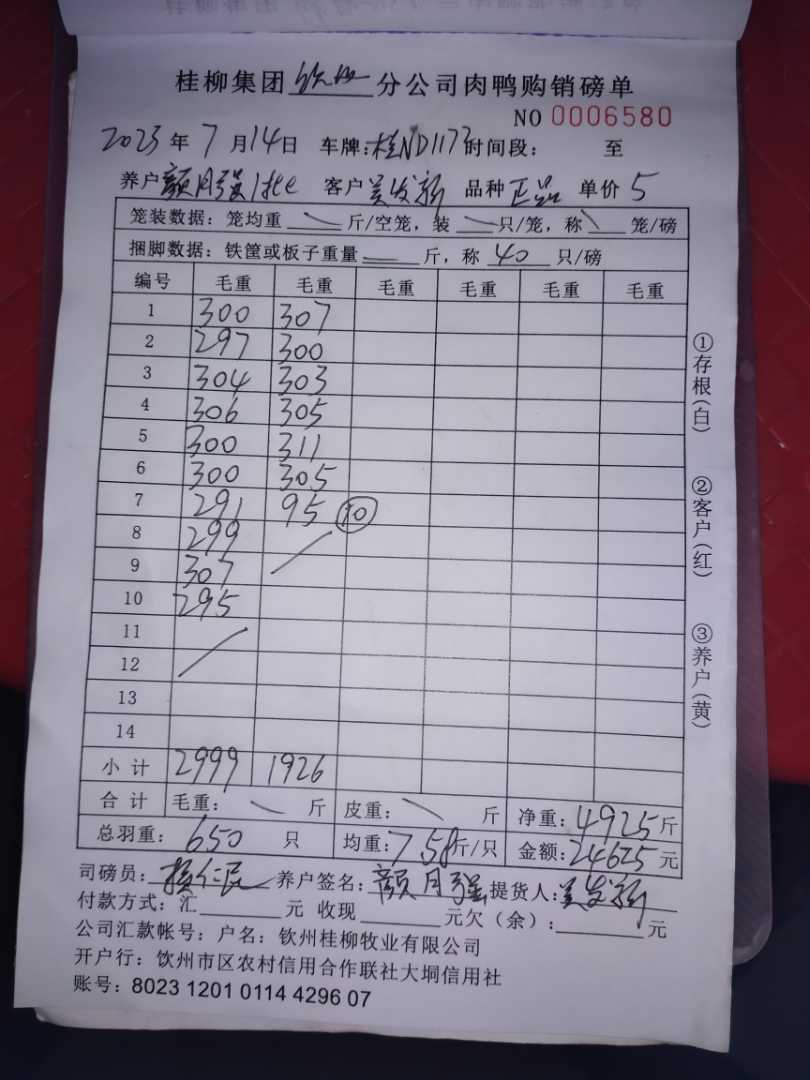 桂柳集团 钦州 分公司肉鸭购销磅单
NO 0006580
2023 年 7 月 14 日 车牌: 桂ND1177 时间段: 至
养户 颜月强 1批 客户 吴发新 品种 正品 单价 5
笼装数据: 笼均重 \ 斤/空笼, 装 \ 只/笼, 称 \ 笼/磅
捆脚数据: 铁筐或板子重量 — 斤, 称 40 只/磅
编号 毛重 毛重 毛重 毛重 毛重 毛重
1 300 307
2 297 300
3 304 303
4 306 305
5 300 311
6 300 305
7 291 95 10
8 299
9 307
10 295
11
12
13
14
小 计 2999 1926
合 计 毛重: \ 斤 皮重: \ 斤 净重: 4925 斤
总羽重: 650 只 均重: 7.58 斤/只 金额: 24625 元
司磅员: 仁民 养户签名: 颜月强 提货人: 吴发新
付款方式: 汇 元 收现 元欠(余): 元
公司汇款帐号: 户名: 钦州桂柳牧业有限公司
开户行: 饮州市区农村信用合作联社大垌信用社
账号: 8023 1201 0114 4296 07
①存根(白) ②客户(红) ③养户(黄)